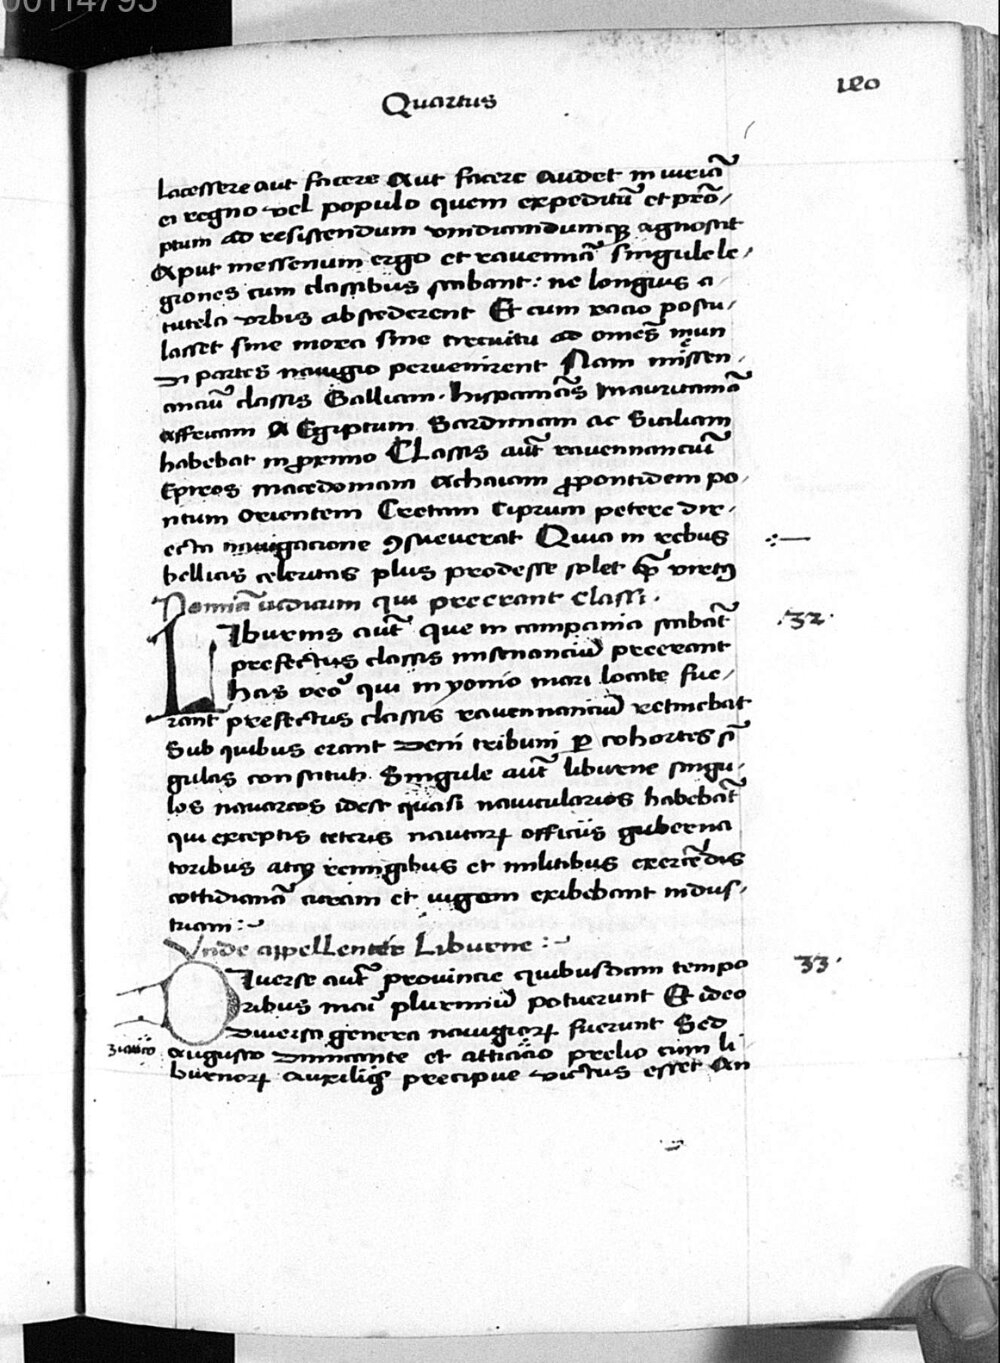 00114795
Quartus
lacessere aut facere Aut facere audet iniuriā
ei regno vel populo quem expeditū et prō-
ptum ad resistendum vindicandumqꝫ agnoscit
Aput messenum ergo et rauennā singule le-
giones cum classibus stabant: ne longius a
tutela vrbis abscederent Et cum racio postu-
lasset sine mora sine circuitu ad omēs mun
di partes nauigio peruenirent Nam missen-
anciū classis Galliam. hispaniās mauritaniā
affricam A Egiptum Sardiniam ac Siciliam
habebat in proximo CLassis aūt rauennanciū
Epiros macedoniam Achaiam ꝓpontidem po-
ntum Orientem Cretam Ciprum petere dir-
ecta nauigacione ꝯsueuerat Quia in rebus
bellicis celeritas plus prodesse solet qͣ virtꝰ
Nomīa iudicum qui preerant classi.
LIburnis aūt que in campania stabāt
.32.
prefectus classis misenanciū preerant
has vero qui in yonio mari locate fue-
rant prefectus classis rauennanciū retinebat
Sub quibus erant deni tribuni ꝑ cohortes sī
gulas constituti Singule aūt liburne singu-
los nauarcos idest quasi nauicularios habebāt
qui exceptis ceteris nautarꝝ officiis guberna
toribus atqꝫ remigibus et militibus exercēdis
cottidianā curam et iugem exibebant indus-
triam :~
Vnde appellentur Liburne :~
DIuerse aūt prouincie quibusdam tempo
33.
ribus mari plurimū potuerunt Et ideo
diuersa genera nauigiorꝝ fuerunt Sed
augusto dimicante et atticaio prelio cum li
burnorꝝ auxiliis precipue victus esset An